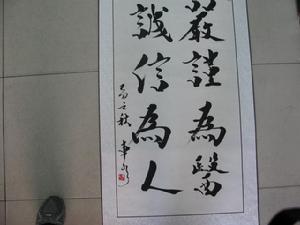 嚴謹為醫
誠信為人